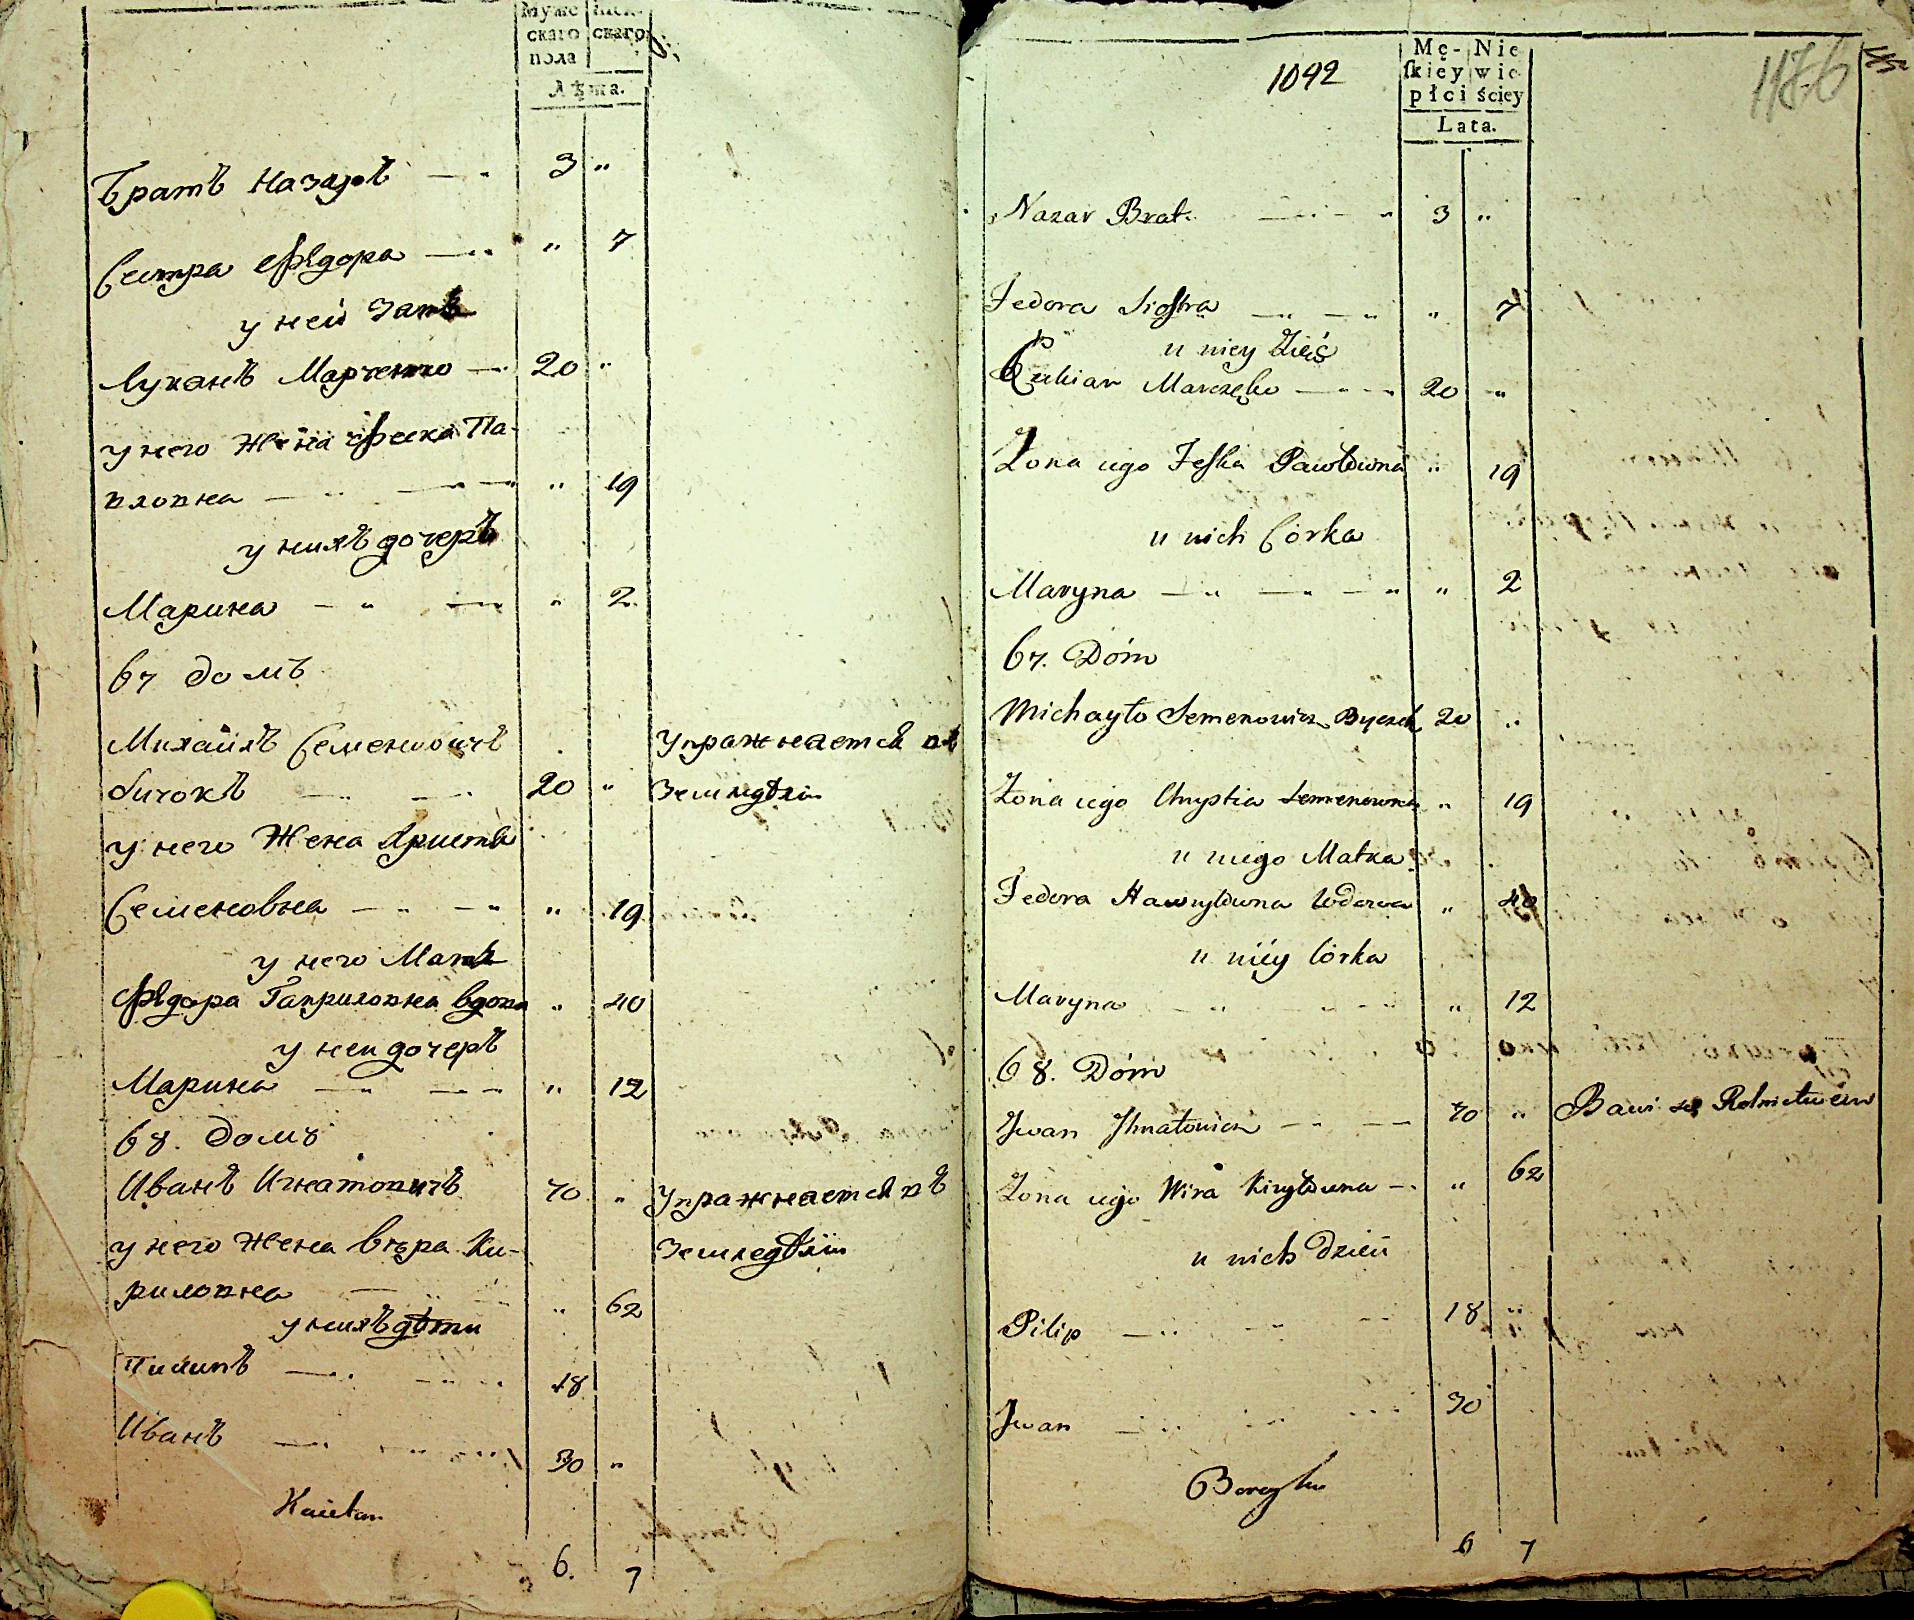 Муже Жен-
скаго скаго
пола
Лѣта.
Братъ Назаръ — " 3 "
Сестра Ѳедора — " " 7
у ней зать
Лукянъ Марченко — 20 "
у него Жена Феска Па-
вловна — " — " " 19
у нихъ дочеръ
Марина — " — " 2
67 домъ
Михайлъ Семеновичъ Упражнается въ
бичокъ — — 20 " Земледѣлiи
у него Жена Христя
Семеновна — " — " " 19
у него Мать
Ѳедора Гавриловна вдова " 40
у неи дочеръ
Марина — " — " " 12
68. домъ
Иванъ Игнатовичъ 70 " Упражнается въ
у него Жена вѣра Ки- Земледѣлiи
риловна — " 62
у нихъ дѣти
Пилипъ — " 18
Иванъ — " 30 "
Kaietan
6. 7
1092
Mę- Nie
skiey wie-
płci ściey
Lata.
Nazar Brat. — " 3 "
Fedora Siostra — " " 7
u niey Zięć
Łukian Marczęko — " 20 "
Żona iego Feska Pawłowna " 19
u nich Córka
Maryna — " — " " 2
67. Dóm
Michayło Semenowicz Byczok 20 "
Żona iego Chrystia Semenowna " 19
u niego Matka
Fedora Hawryłowna Wdowa " 40
u niéy Córka
Maryna — " " 12
68. Dóm
Jwan Jhnatowicz — " 70 " Bawi się Rolnictwem
Żona iego Wira Kiryłowna — " 62
u nich Dzieci
Pilip — " 18 "
Jwan — " 30
6 7